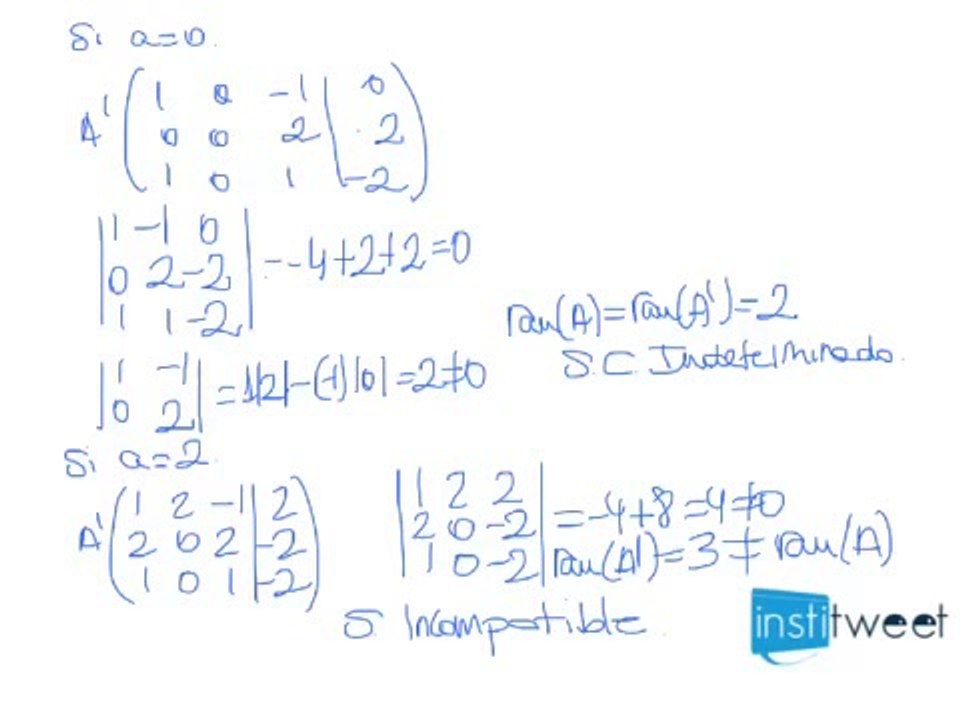 Si a=0.
A' ( 1 0 -1 | 0
0 0 2 | 2
1 0 1 | -2 )
| 1 -1 0 |
| 0 2 -2 | = -4+2+2=0
| 1 1 -2 |
ran(A)=ran(A')=2
S.C. Indeterminado.
| 1 -1 |
| 0 2 | = 1|2|-(-1)|0|=2≠0
Si a=2.
A' ( 1 2 -1 | 2
2 0 2 | -2
1 0 1 | -2 )
| 1 2 2 |
| 2 0 -2 | = -4+8=4≠0
| 1 0 -2 | ran(A')=3≠ran(A)
S. Incompatible.
institweet